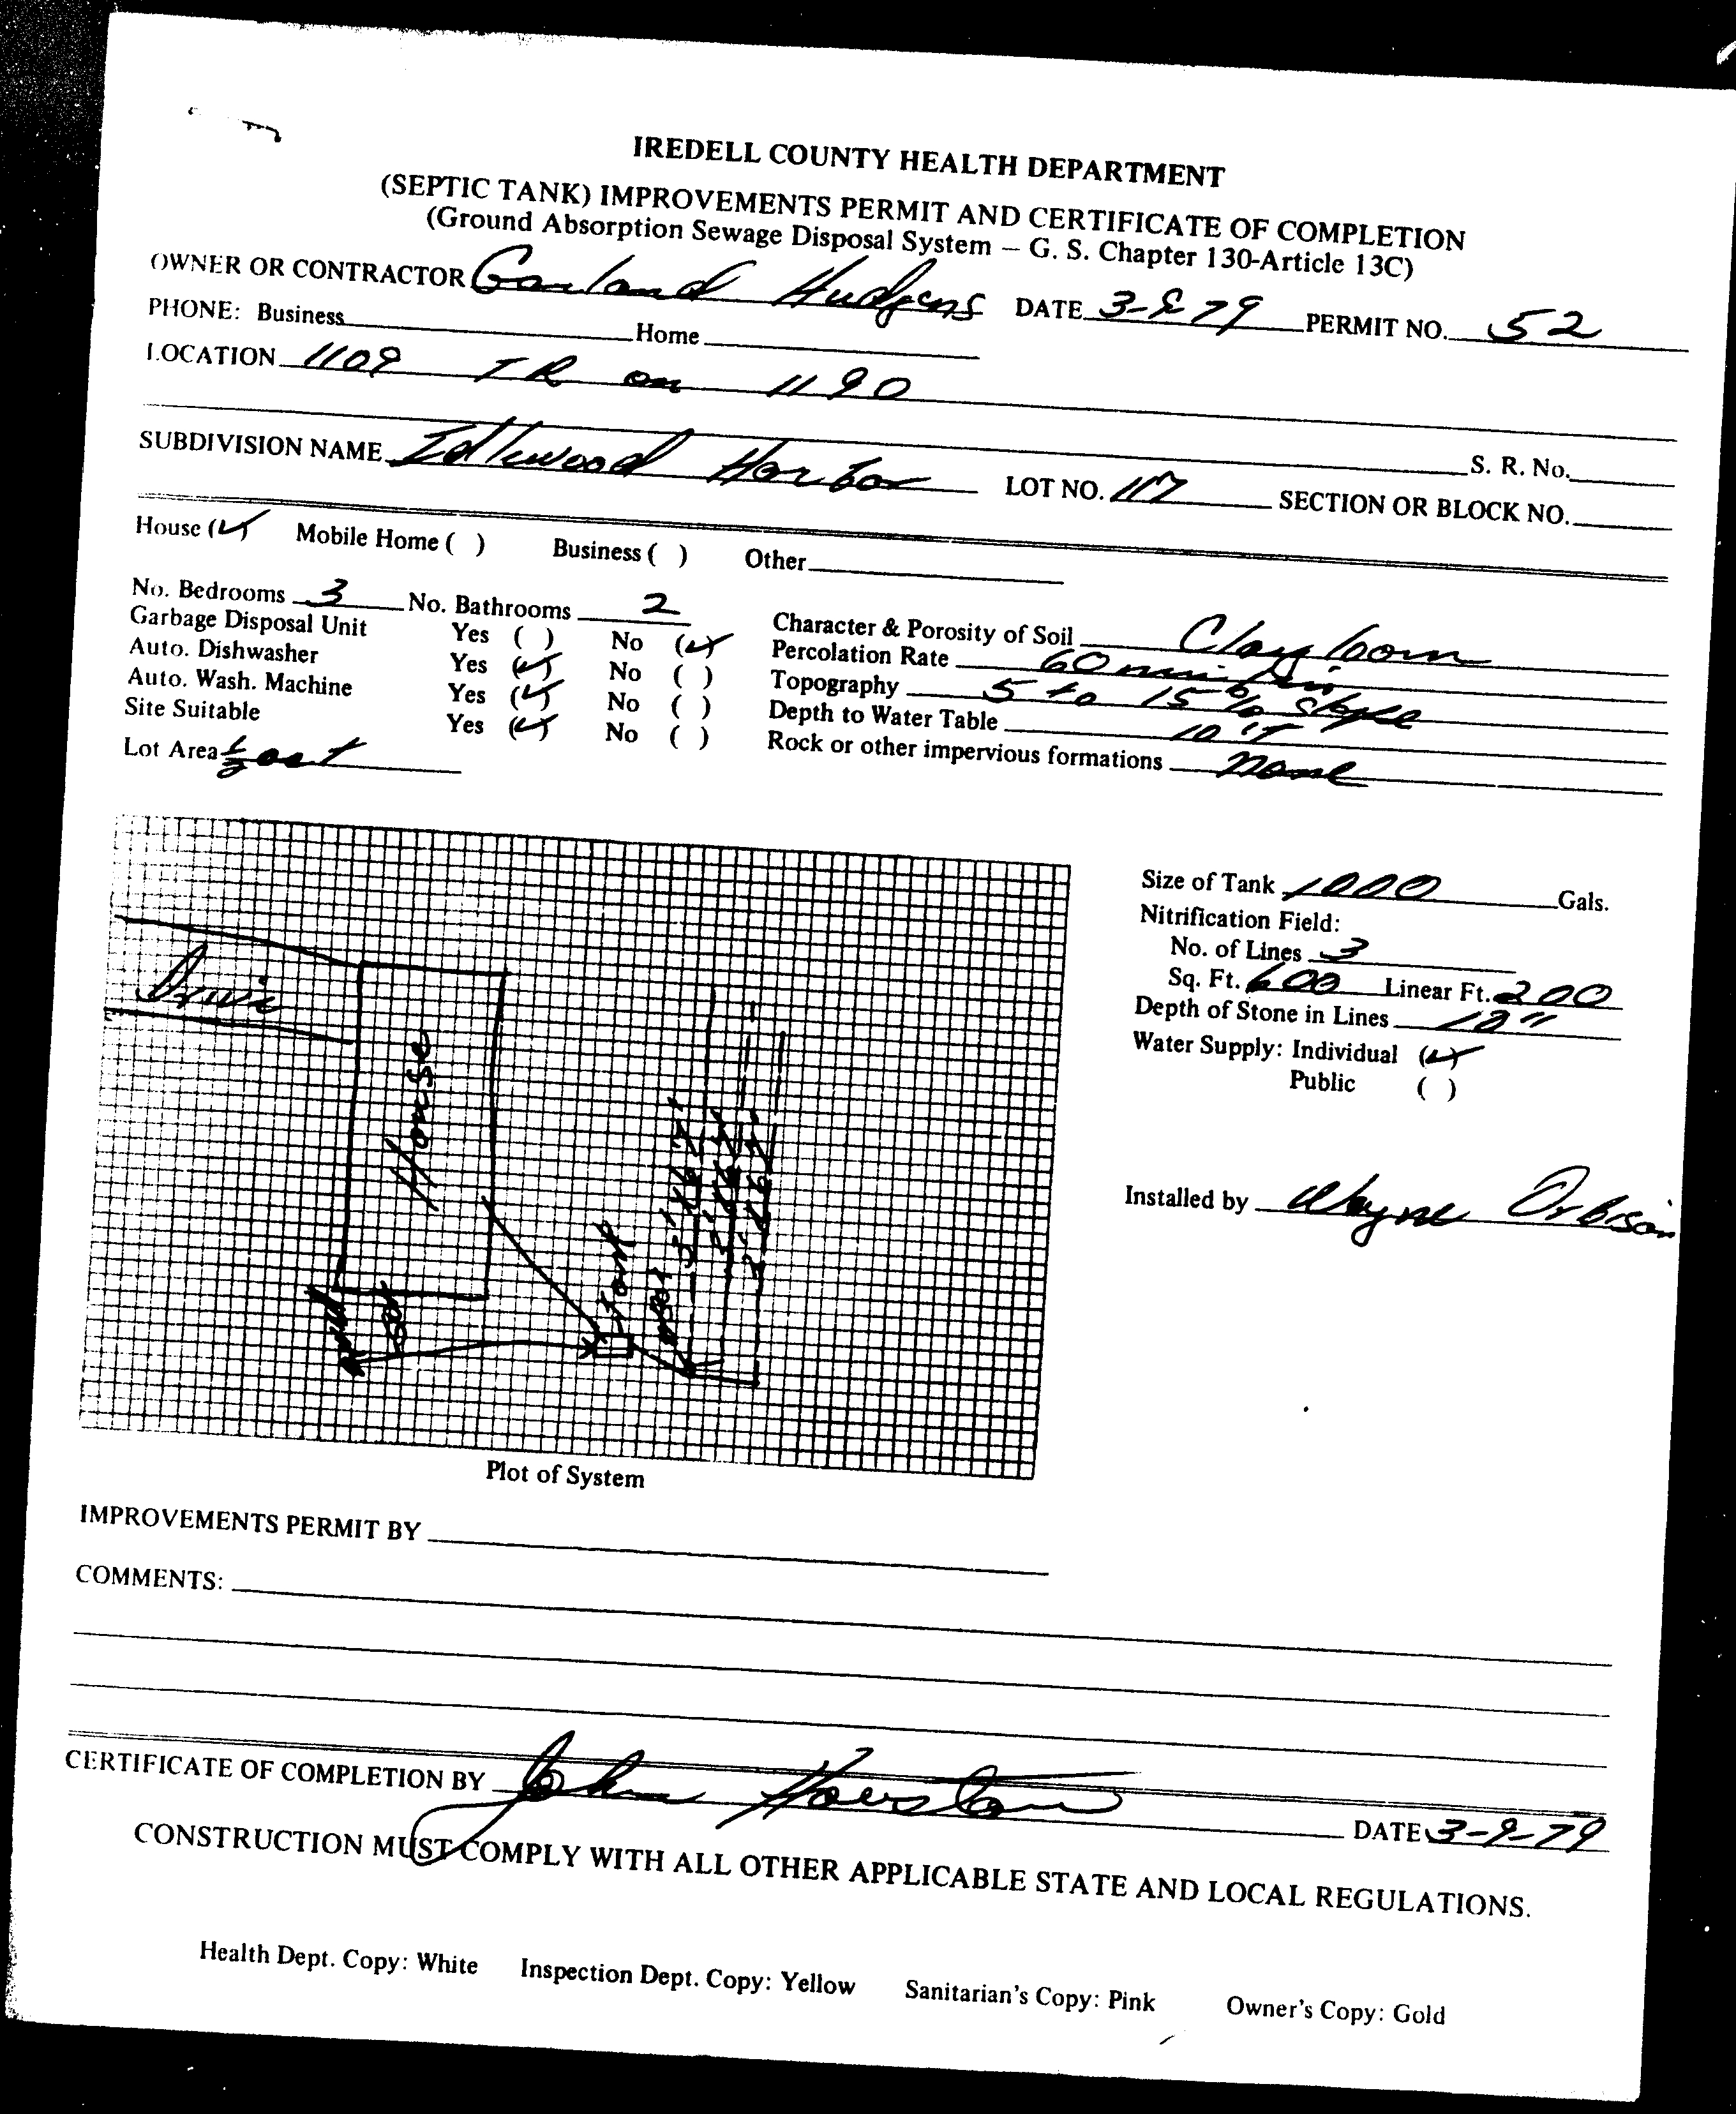 IREDELL COUNTY HEALTH DEPARTMENT
(SEPTIC TANK) IMPROVEMENTS PERMIT AND CERTIFICATE OF COMPLETION
(Ground Absorption Sewage Disposal System — G. S. Chapter 130-Article 13C)
OWNER OR CONTRACTOR Garland Hudgens DATE 3-9-79 PERMIT NO. 52
PHONE: Business Home
LOCATION 1109 TR on 1190
S. R. No.
SUBDIVISION NAME Idlewood Harbor LOT NO. 117 SECTION OR BLOCK NO.
House (✓) Mobile Home ( ) Business ( ) Other
No. Bedrooms 3 No. Bathrooms 2
Garbage Disposal Unit Yes ( ) No (✓)
Auto. Dishwasher Yes (✓) No ( )
Auto. Wash. Machine Yes (✓) No ( )
Site Suitable Yes (✓) No ( )
Lot Area
Character & Porosity of Soil Clay loam
Percolation Rate 60 min/in
Topography 5 to 15% slope
Depth to Water Table
Rock or other impervious formations none
Size of Tank 1000 Gals.
Nitrification Field:
No. of Lines 3
Sq. Ft. 600 Linear Ft. 200
Depth of Stone in Lines
Water Supply: Individual (✓)
Public ( )
Installed by Wayne Orbison
House
Tank
Plot of System
IMPROVEMENTS PERMIT BY
COMMENTS:
CERTIFICATE OF COMPLETION BY John Houston DATE 3-9-79
CONSTRUCTION MUST COMPLY WITH ALL OTHER APPLICABLE STATE AND LOCAL REGULATIONS.
Health Dept. Copy: White Inspection Dept. Copy: Yellow Sanitarian's Copy: Pink Owner's Copy: Gold